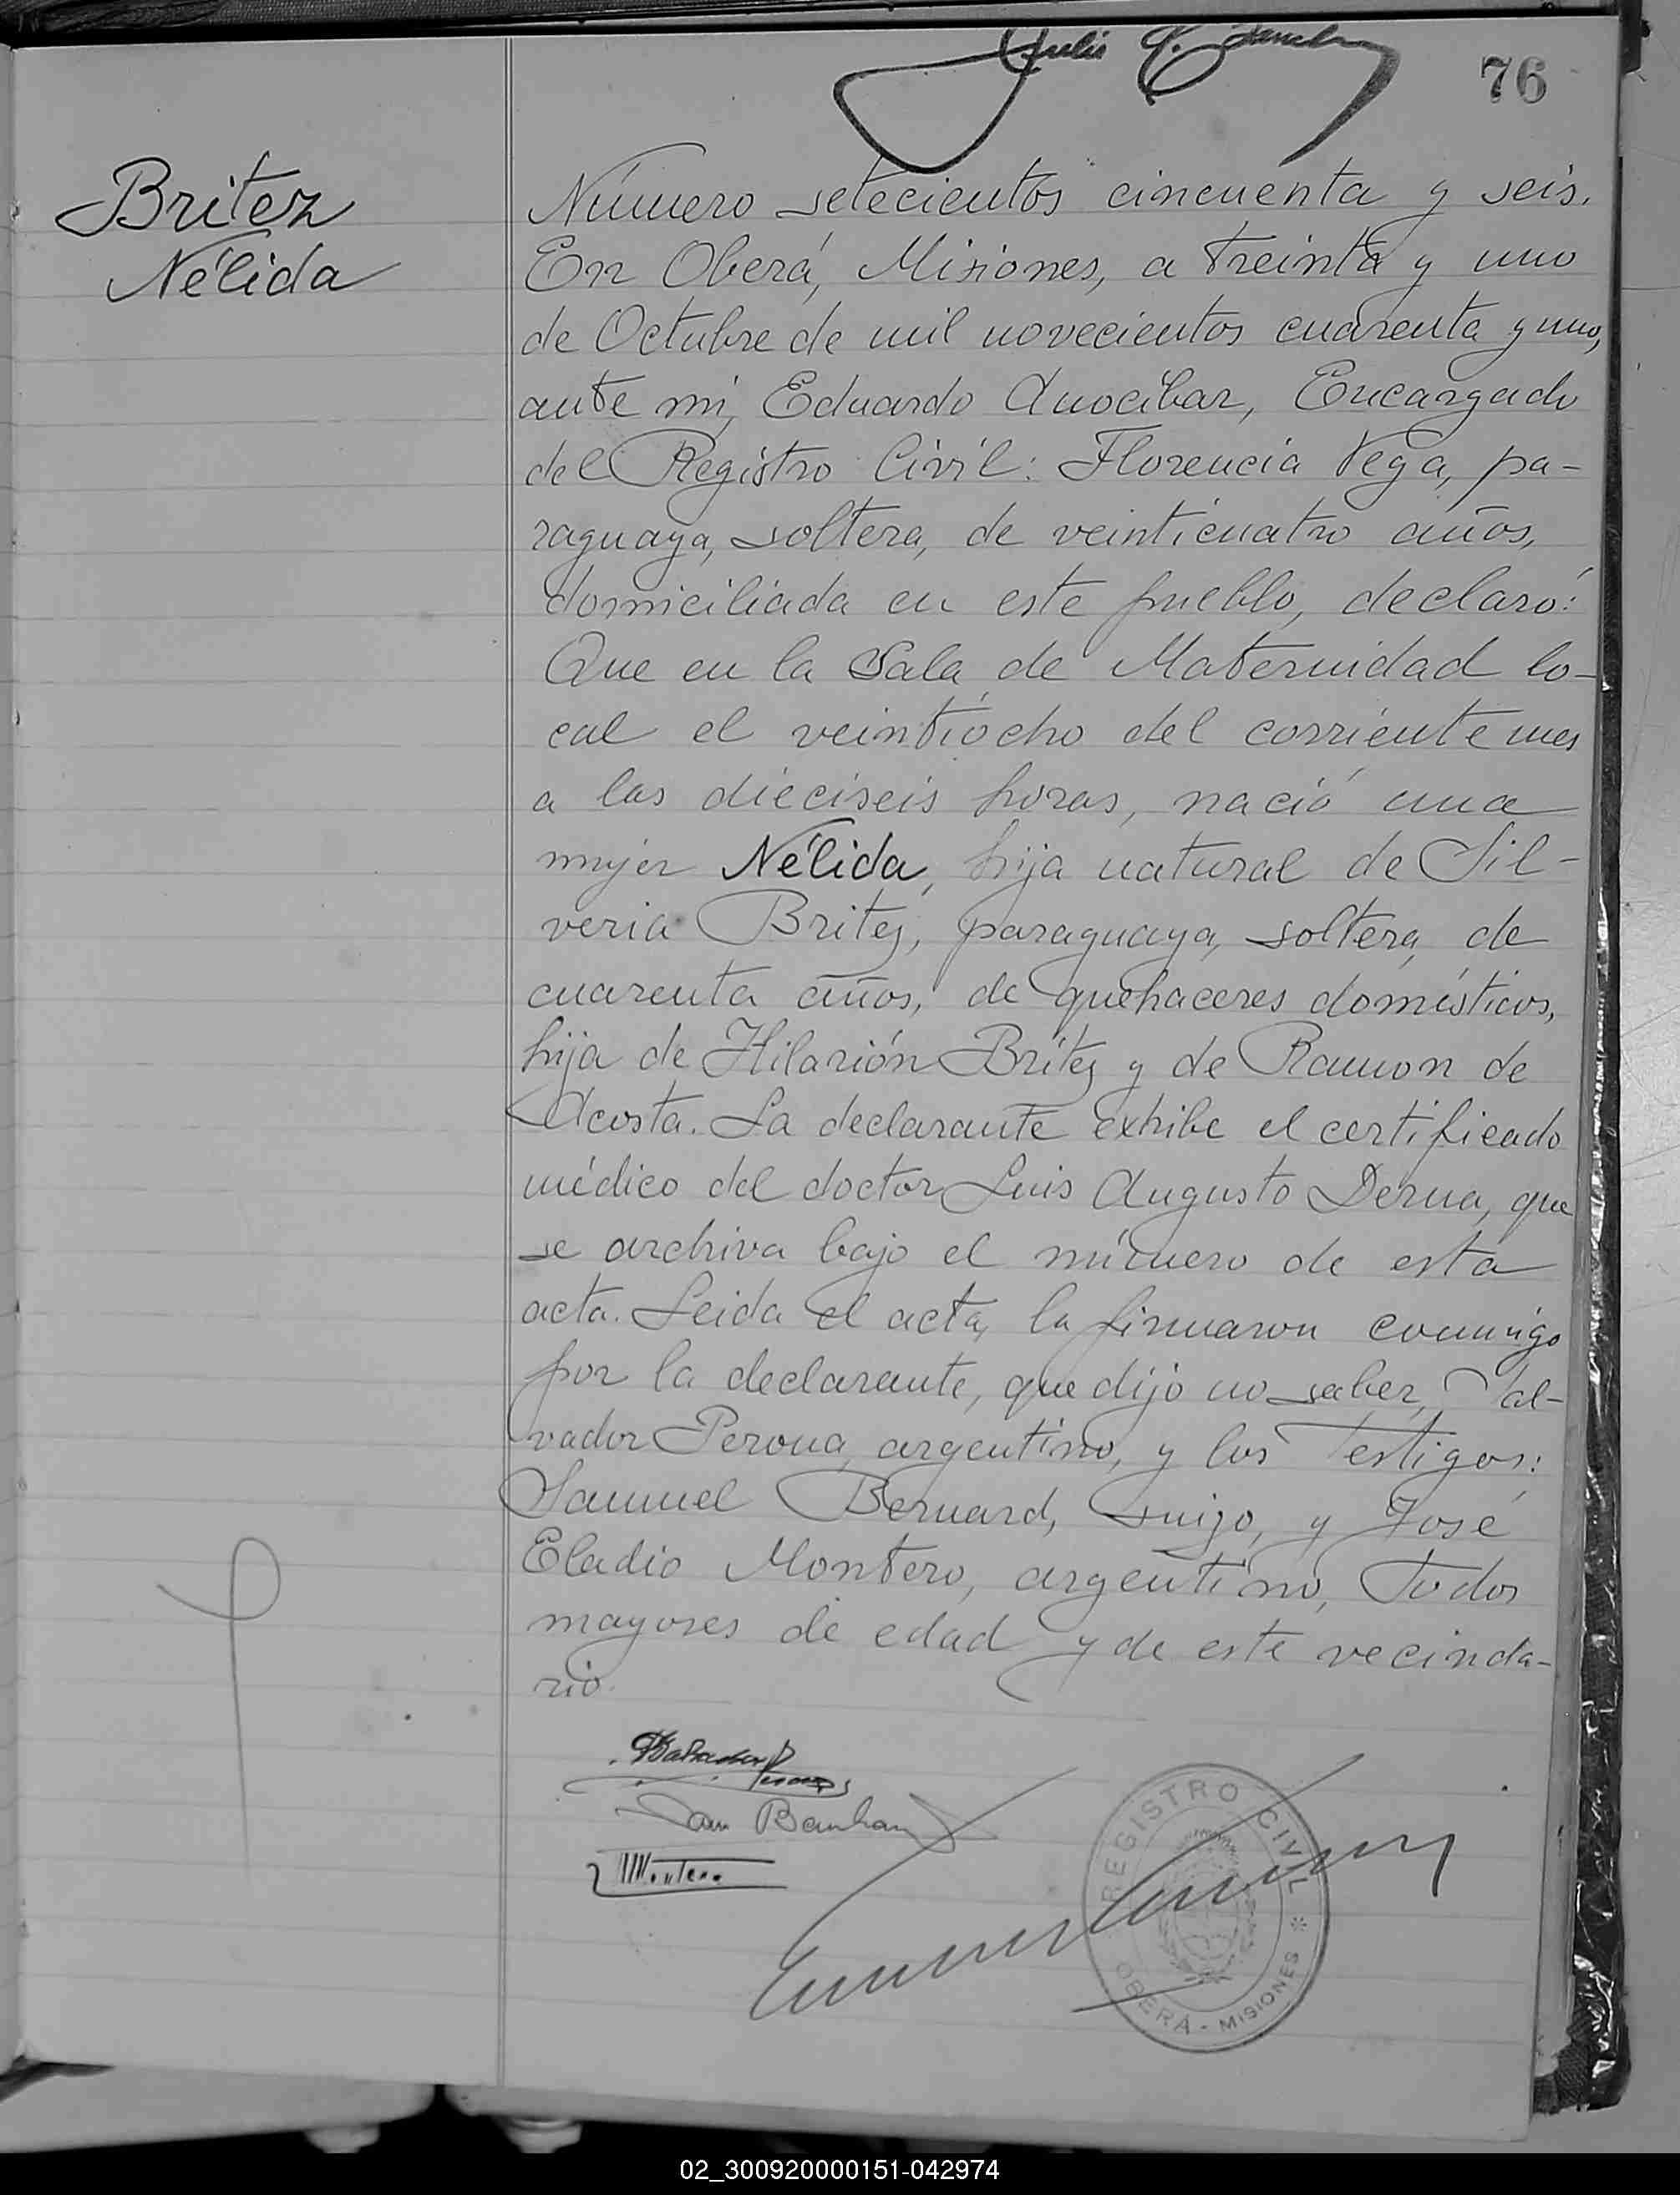 76
Britez
Nélida
Número setecientos cincuenta y seis.
En Oberá, Misiones, a treinta y uno
de Octubre de mil novecientos cuarenta y uno,
ante mi, Eduardo Anocibar, Encargado
del Registro Civil: Florencia Vega, pa-
raguaya, soltera, de veinticuatro años,
domiciliada en este pueblo, declaró:
Que en la Sala de Maternidad lo-
cal el veintiocho del corriente mes
a las dieciseis horas, nació una
mujer Nélida, hija natural de Sil-
veria Britez, paraguaya, soltera, de
cuarenta años, de quehaceres domésticos,
hija de Hilarión Britez y de Ramon de
Acosta. La declarante exhibe el certificado
médico del doctor Luis Augusto Derna, que
se archiva bajo el número de esta
acta. Leida el acta, la firmaron conmigo
por la declarante, que dijo no saber, Sal-
vador Perona, argentino, y los Testigos:
Samuel Bernard, suizo, y José
Eladio Montero, argentino, todos
mayores de edad y de este vecinda-
rio.
Montero
REGISTRO CIVIL
OBERÁ - MISIONES
02_300920000151-042974